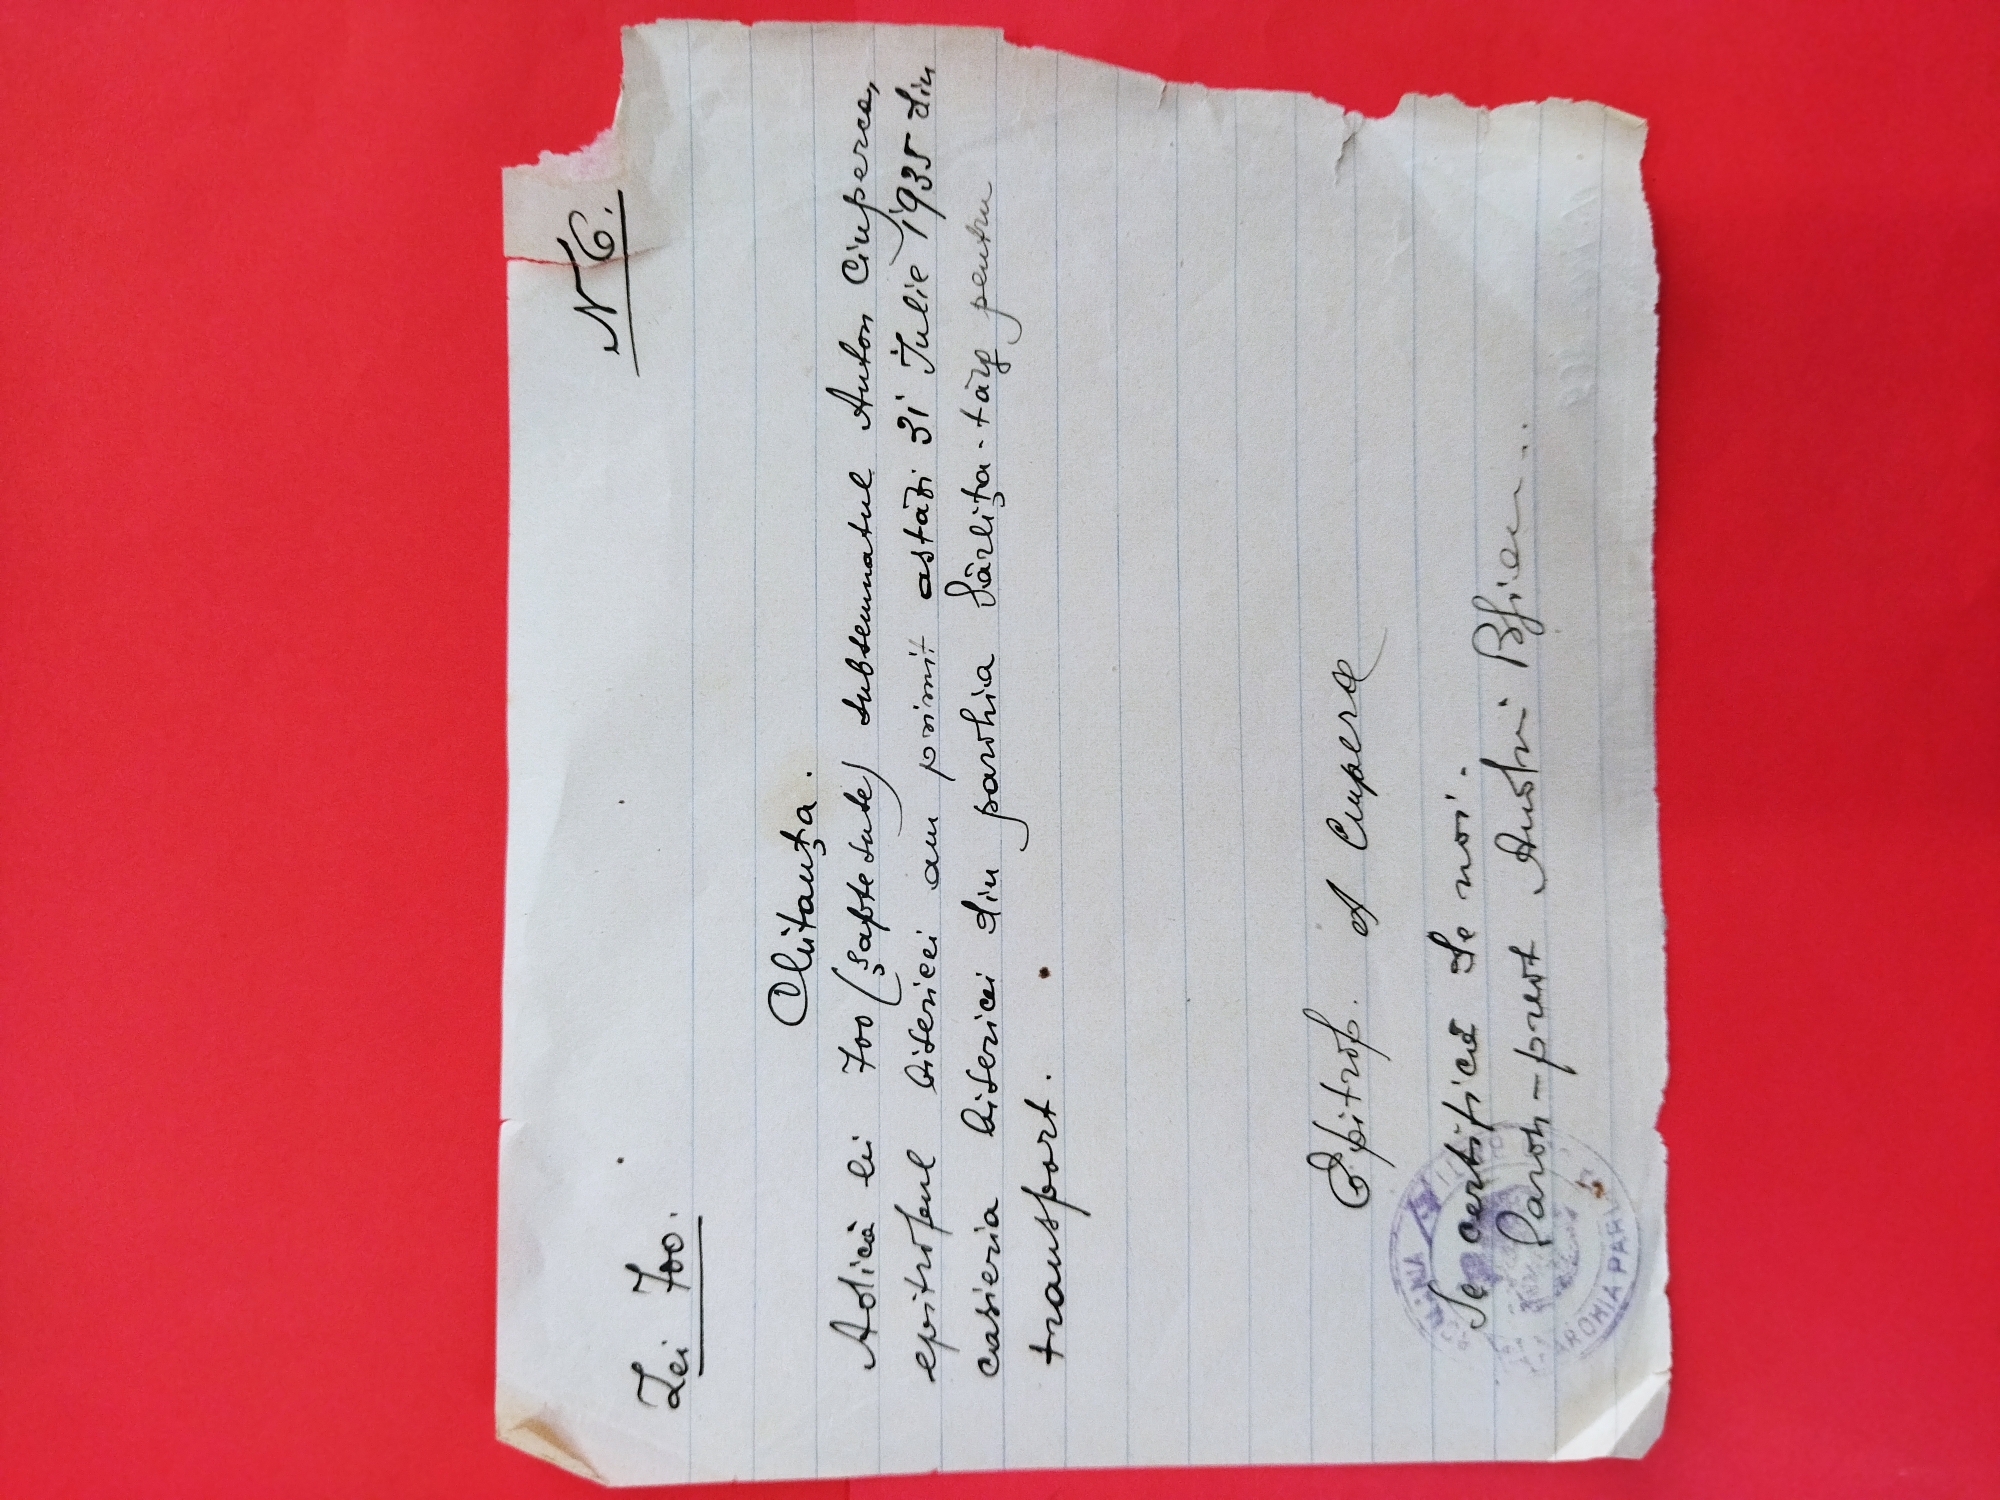 Lei 700.
N 6.
Chitanța.
Adică lei 700 (șapte sute) subsemnatul Anton Ciuperca,
epitropul bisericei am primit astăzi 31 Iulie 1935 din
casieria bisericei din parohia Sârlița-târg pentru
transport.
Epitrop. A Ciuperca
Se certifică de noi.
Paroh-preot
PAROHIA PAR